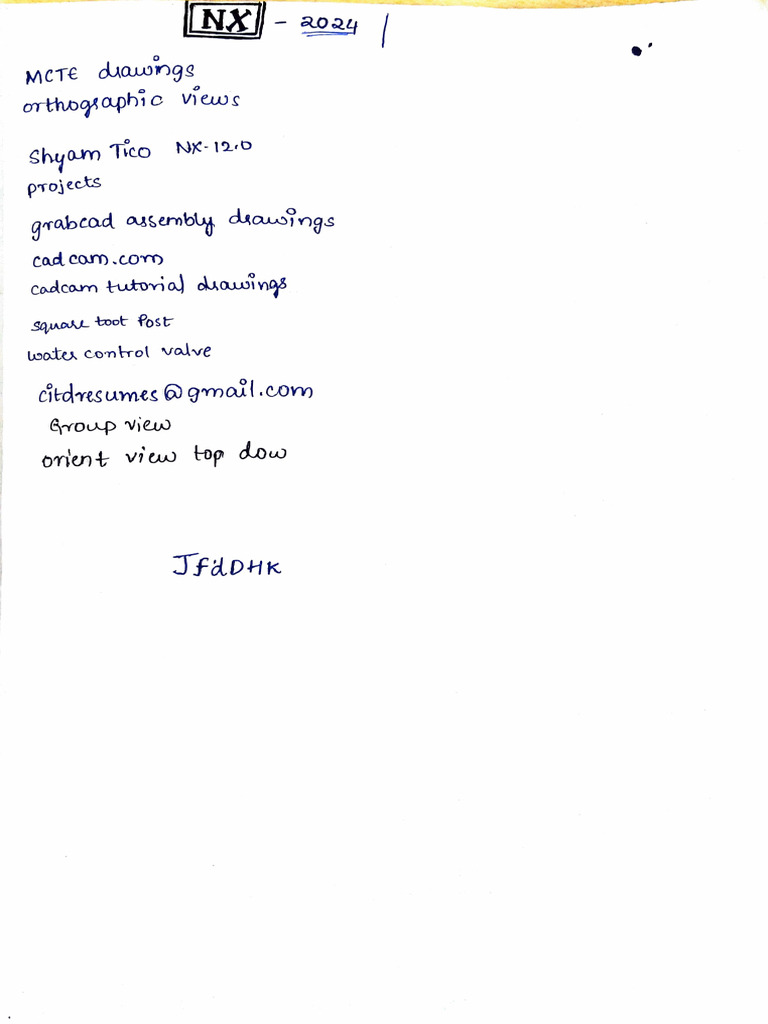 NX - 2024
MCTE drawings
orthographic views
Shyam Tico NX-12.0
projects
grabcad assembly drawings
cadcam.com
cadcam tutorial drawings
square toot Post
water control valve
citdresumes@gmail.com
Group view
orient view top dow
JfdDHK